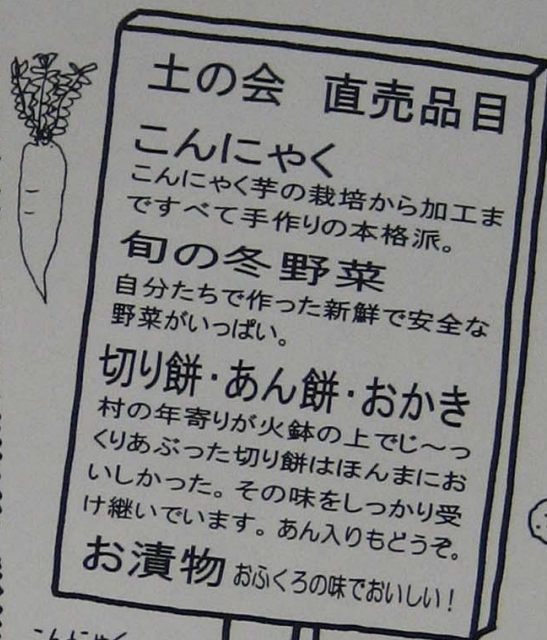 土の会 直売品目
こんにゃく
こんにゃく芋の栽培から加工ま
ですべて手作りの本格派。
旬の冬野菜
自分たちで作った新鮮で安全な
野菜がいっぱい。
切り餅・あん餅・おかき
村の年寄りが火鉢の上でじ〜っ
くりあぶった切り餅はほんまにお
いしかった。その味をしっかり受
け継いでいます。あん入りもどうぞ。
お漬物 おふくろの味でおいしい！
こんにゃく